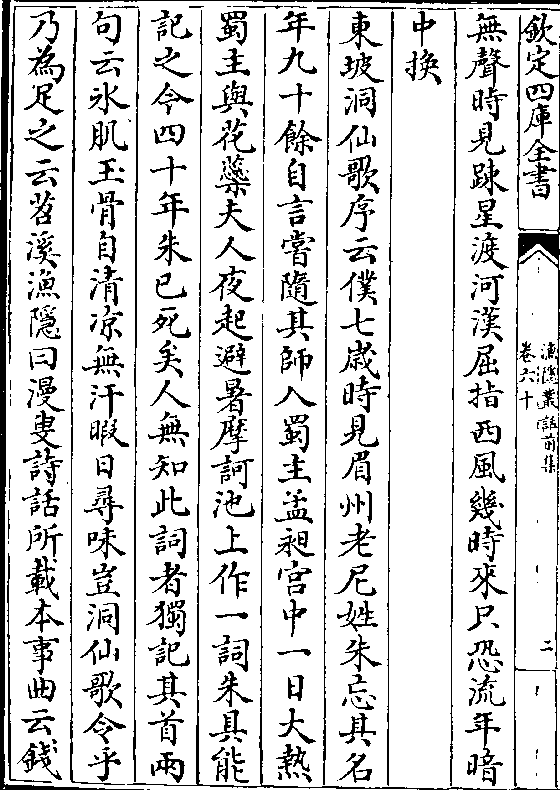 欽定四庫全書
漁隱叢話前集
卷六十
二
無聲時見踈星渡河漢屈指西風幾時來只恐流年暗
中換
東坡洞仙歌序云僕七歳時見眉州老尼姓朱忘其名
年九十餘自言嘗隨其師入蜀主孟昶宫中一日大熱
蜀主與花蘂夫人夜起避暑摩訶池上作一詞朱具能
記之今四十年朱已死矣人無知此詞者獨記其首兩
句云氷肌玉骨自清凉無汗暇日尋味豈洞仙歌令乎
乃為足之云苕溪漁隱曰漫叟詩話所載本事曲云錢